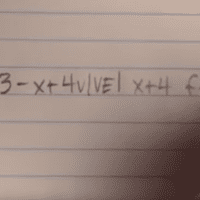 3-x+4V|VE| x+4